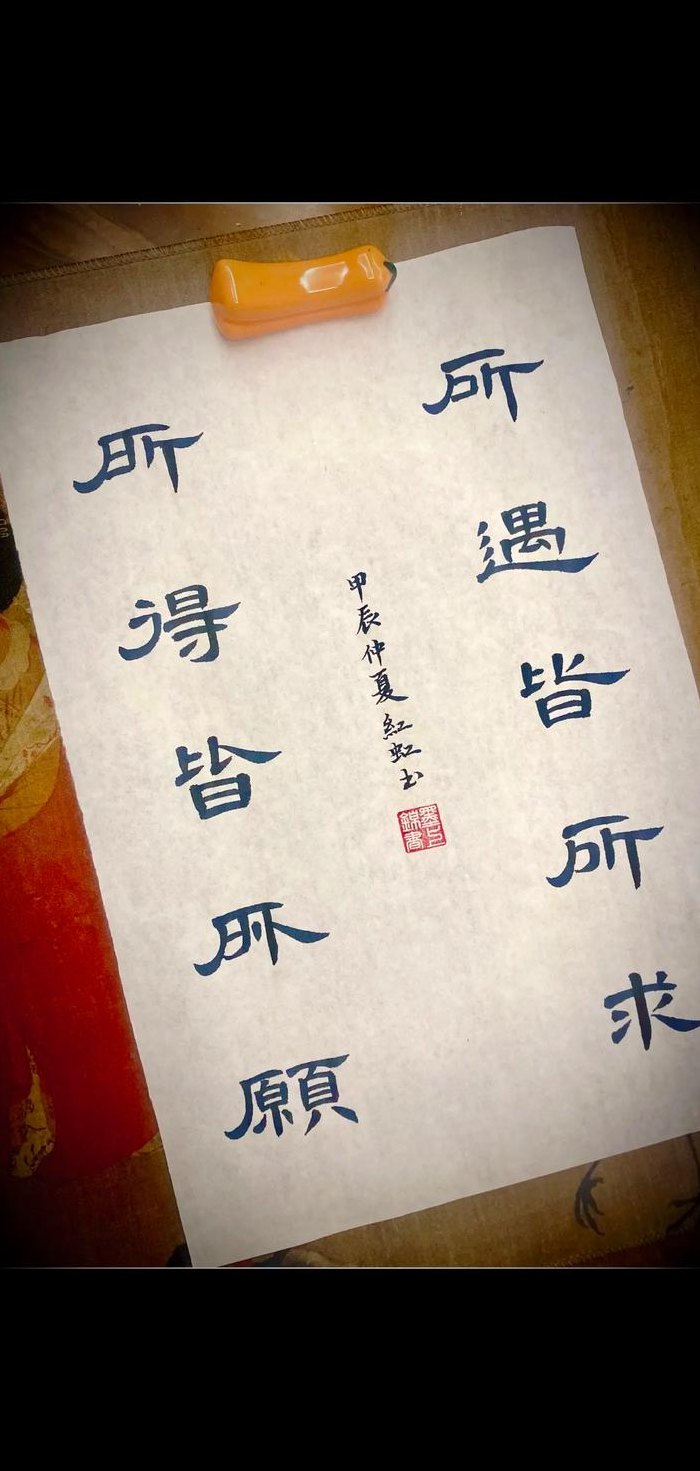 所遇皆所求
所得皆所願
甲辰仲夏紅虹书
墨上
錦書